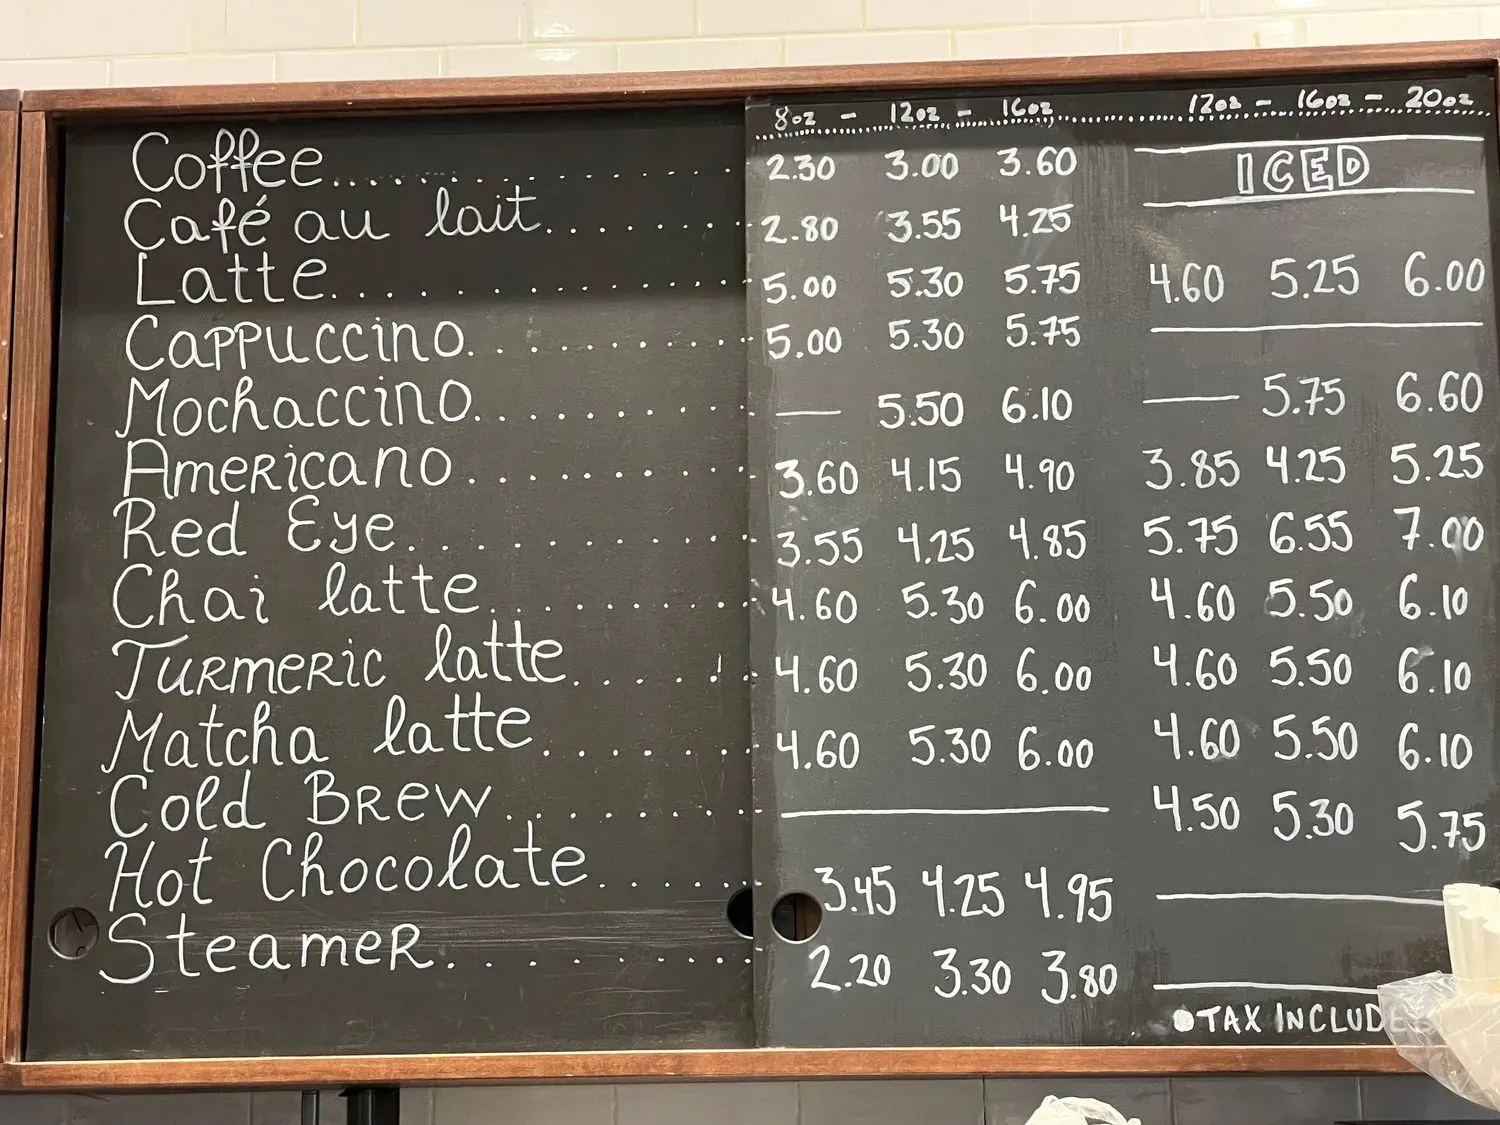 8oz - 12oz - 16oz 12oz - 16oz - 20oz
ICED
Coffee 2.30 3.00 3.60
Café au lait 2.80 3.55 4.25
Latte 5.00 5.30 5.75 4.60 5.25 6.00
Cappuccino 5.00 5.30 5.75
Mochaccino — 5.50 6.10 — 5.75 6.60
Americano 3.60 4.15 4.90 3.85 4.25 5.25
Red Eye 3.55 4.25 4.85 5.75 6.55 7.00
Chai latte 4.60 5.30 6.00 4.60 5.50 6.10
Turmeric latte 4.60 5.30 6.00 4.60 5.50 6.10
Matcha latte 4.60 5.30 6.00 4.60 5.50 6.10
Cold Brew 4.50 5.30 5.75
Hot Chocolate 3.45 4.25 4.95
Steamer 2.20 3.30 3.80
TAX INCLUDED